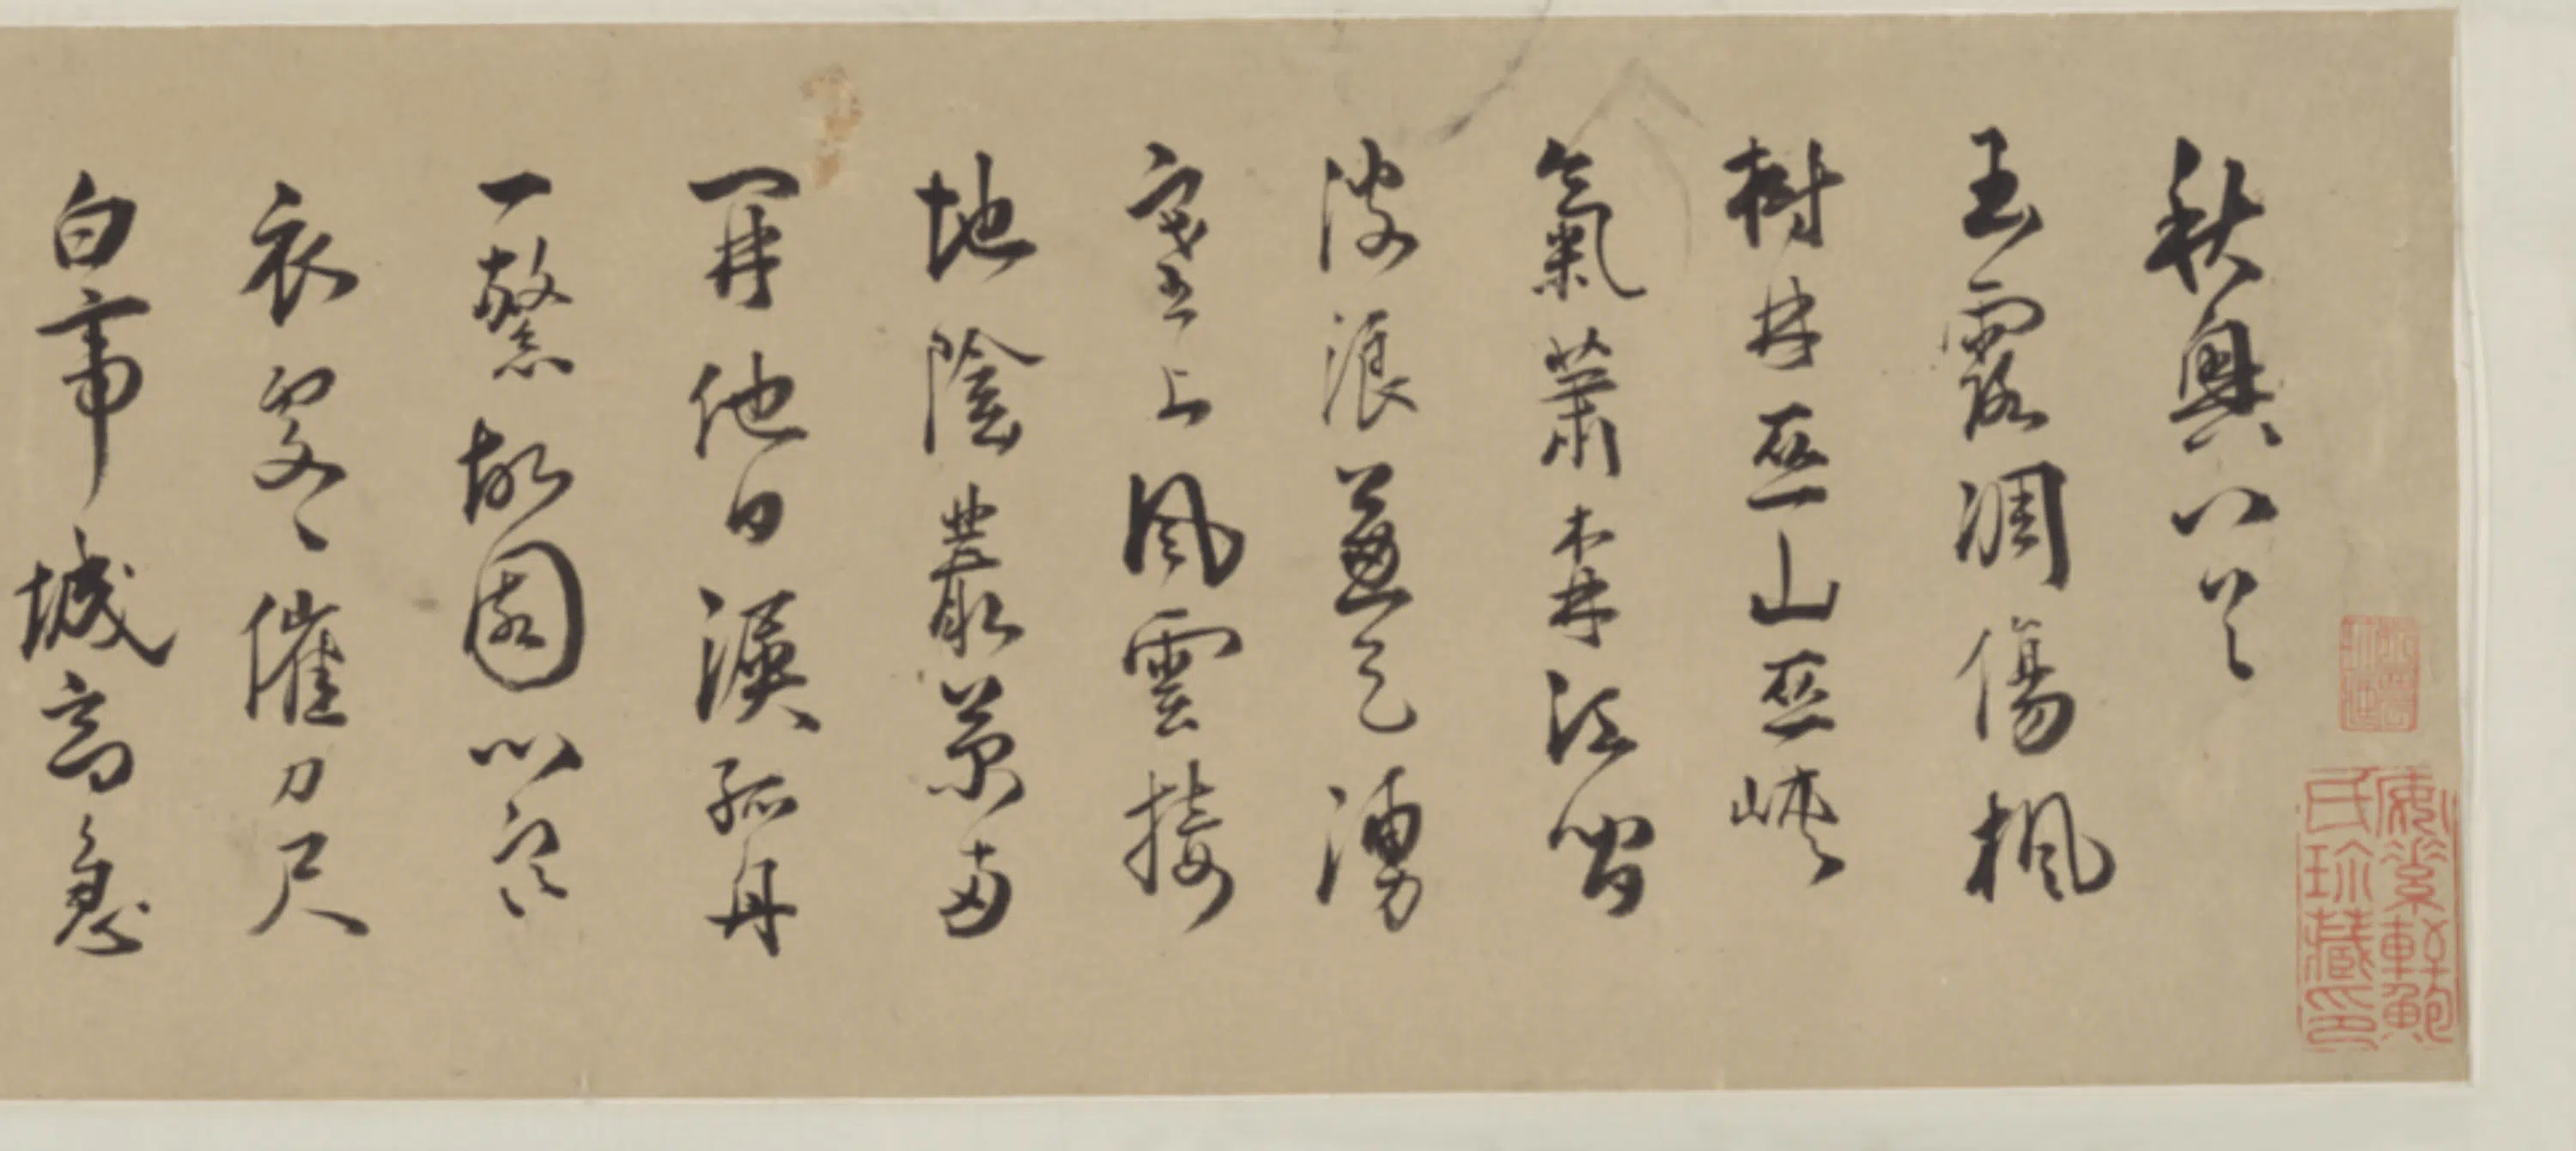 秋興八首
玉露凋傷楓
樹林巫山巫峽
氣蕭森江間
波浪兼天湧
塞上風雲接
地陰叢菊兩
開他日淚孤舟
一繫故園心寒
衣處〻催刀尺
白帝城高急
素軒鮑
氏珍藏印